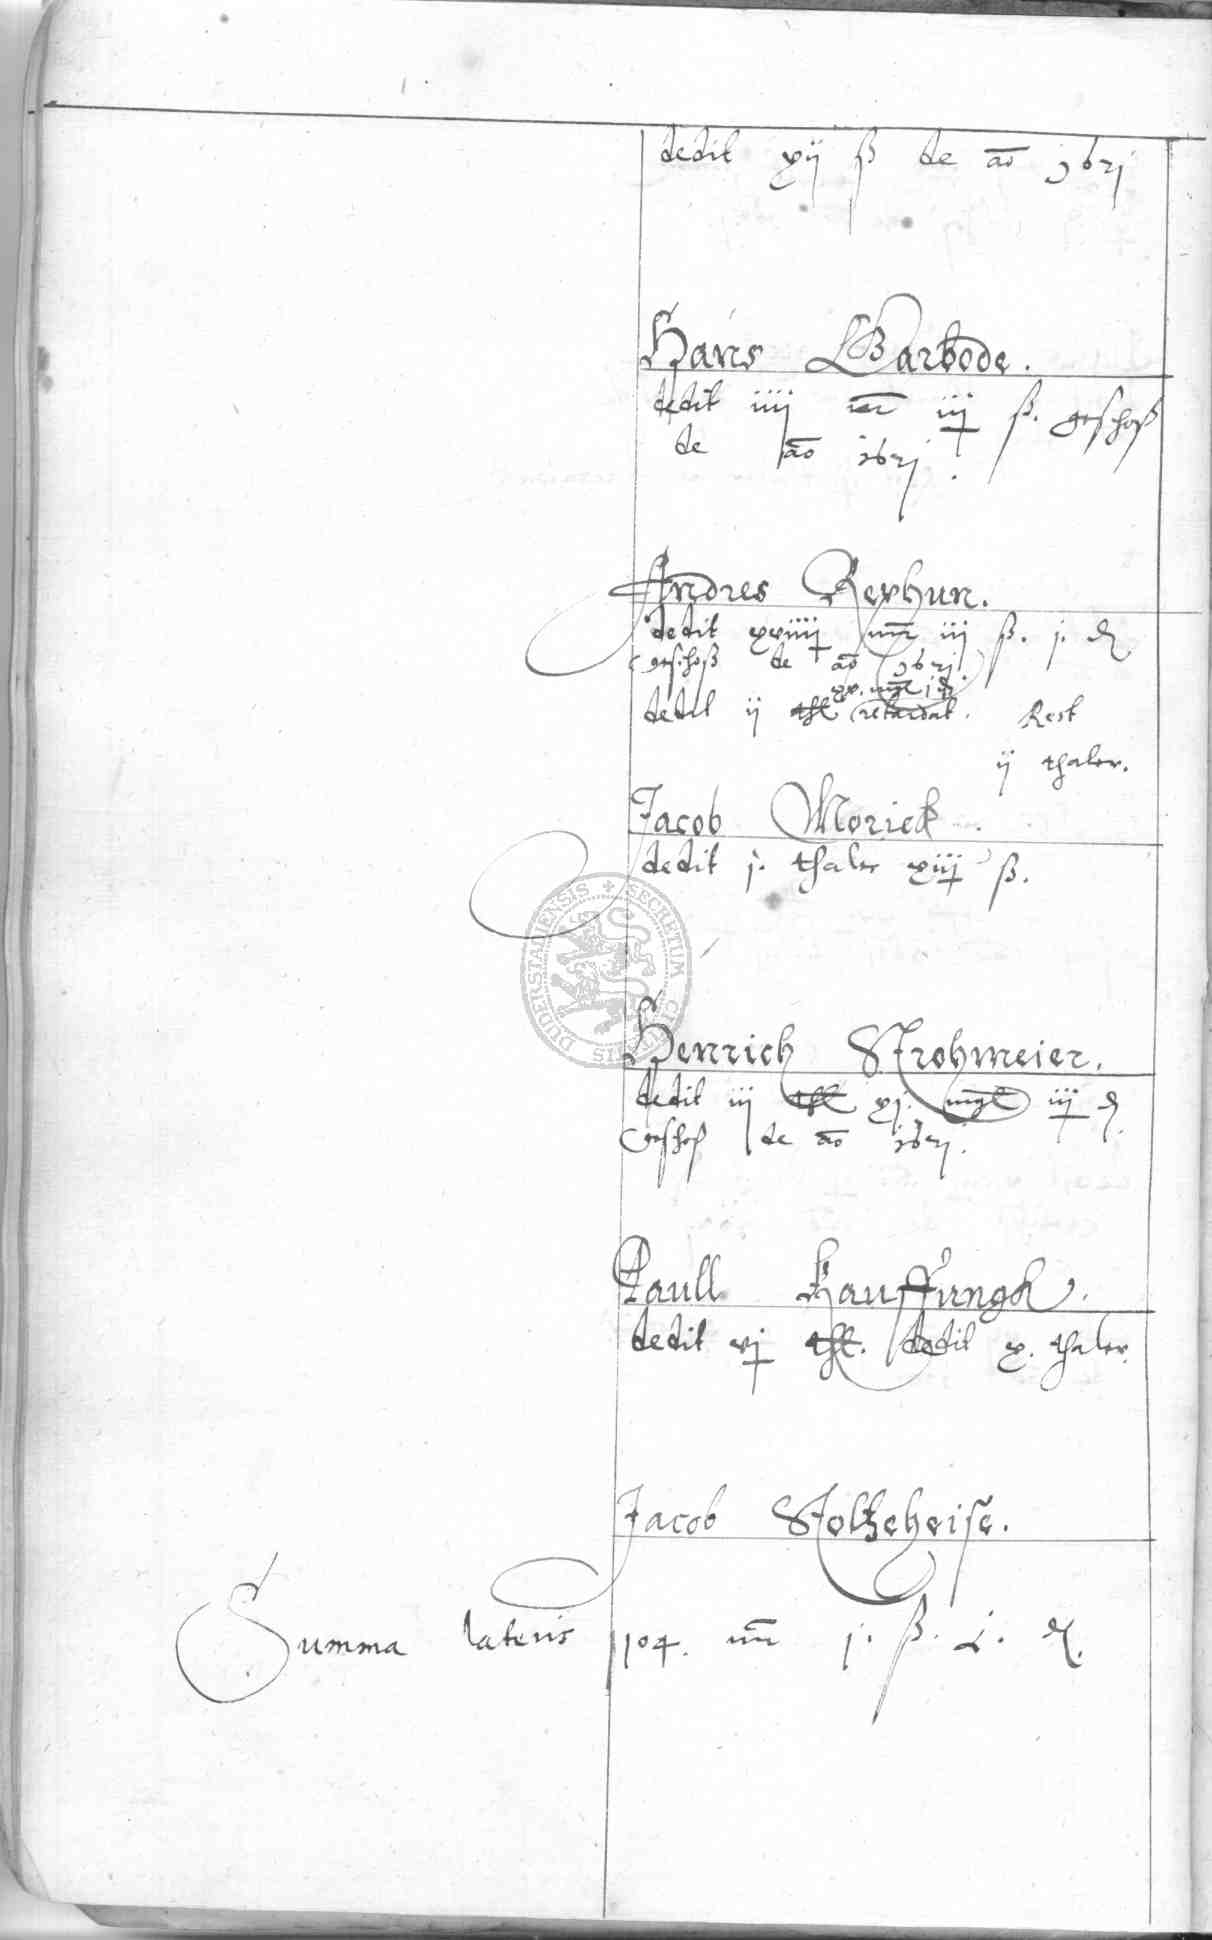 dedit xij ß de ao 1621
Hans Barbode.
dedit iiij mr iij ß. geschoß
de ao 1621.
Andres Rexhun.
dedit xviiij mr iij ß. j. d
geschoß de ao 1621
xv. mgl
dedit ij thl retardat. Rest
ij thaler.
Jacob Morick.
dedit j. thaler xiij ß.
DUDERSTADIENSIS + SECRETUM CIVITATIS
Henrich Strohmeier.
dedit iij thl xj. mgl iij d
Geschoß de ao 1621.
Paull Kauffungk.
dedit vj thl. dedit x. thaler.
Jacob Stoltzeheise.
Summa lateris 104. mr j. ß. d.